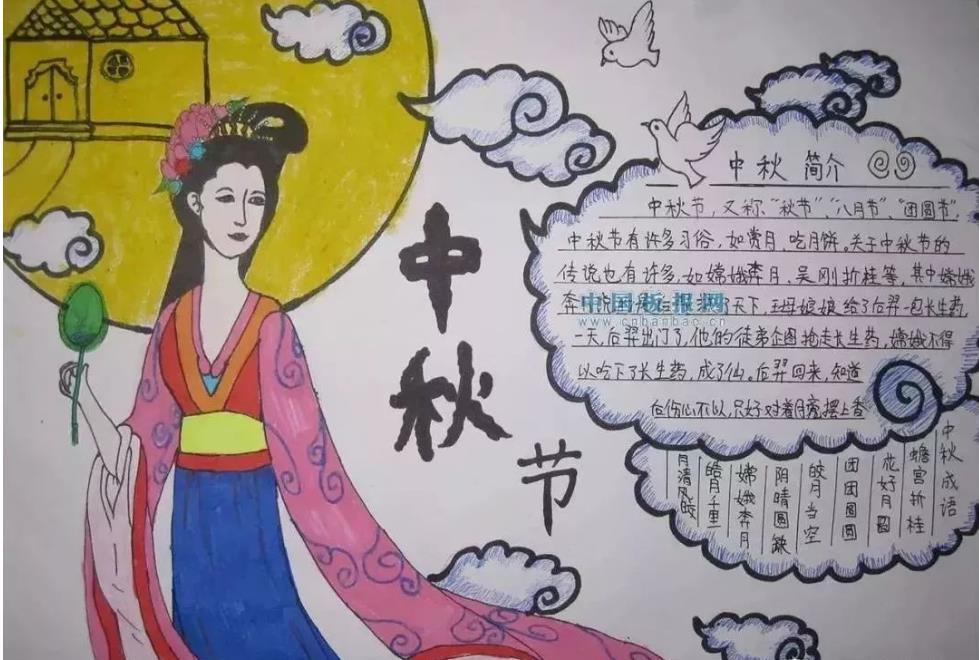 中秋节
中秋简介
中秋节，又称“秋节”“八月节”、“团圆节”，
中秋节有许多习俗，如赏月、吃月饼。关于中秋节的
传说也有许多，如嫦娥奔月，吴刚折桂等，其中嫦娥
奔月说天下，王母娘娘给了后羿一包长生药，
中国板报网
www.cnbanbao.cn
一天，后羿出门了，他的徒弟企图抢走长生药，嫦娥不得
以吃下了长生药，成了仙。后羿回来，知道
后伤心不以，只好对着月亮摆上香
中秋成语
蟾宫折桂
花好月圆
团团圆圆
皎月当空
阴晴圆缺
嫦娥奔月
皓月千里
月清风皎